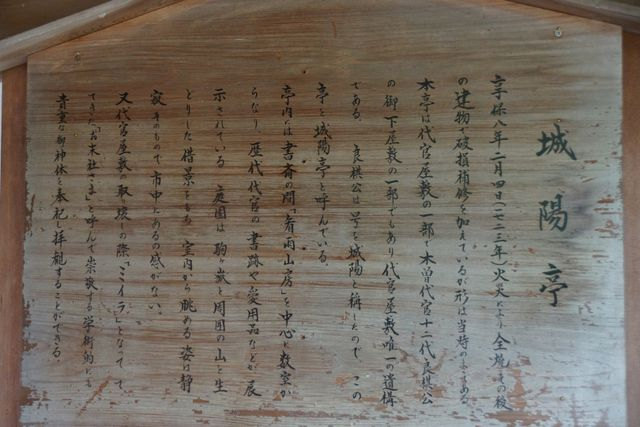 城陽亭
享保八年二月四日(一七二三年)火災により全焼その後
の建物で破損補修を加えているが形は当時のままである
本亭は代官屋敷の一部で木曽代官十二代良棋公
の御下屋敷の一部でもあり代官屋敷唯一の遺構
である。良棋公は号を城陽と称したので、この
亭を城陽亭と呼んでいる。
亭内には書斎の間「看雨山房」を中心に数室か
らなり、歴代代官の書跡や愛用品などが展
示されている 庭園は駒ヶ嶽周囲の山と生
どりした借景をもち 室内から眺める姿は静
寂そのもので、市中にあるの感がない、
又代官屋敷の取り壊しの際「ミイラ」となって
てきた「お末社さま」と呼んで崇敬する学術的にも
貴重な御神体を奉祀し拝観することができる。